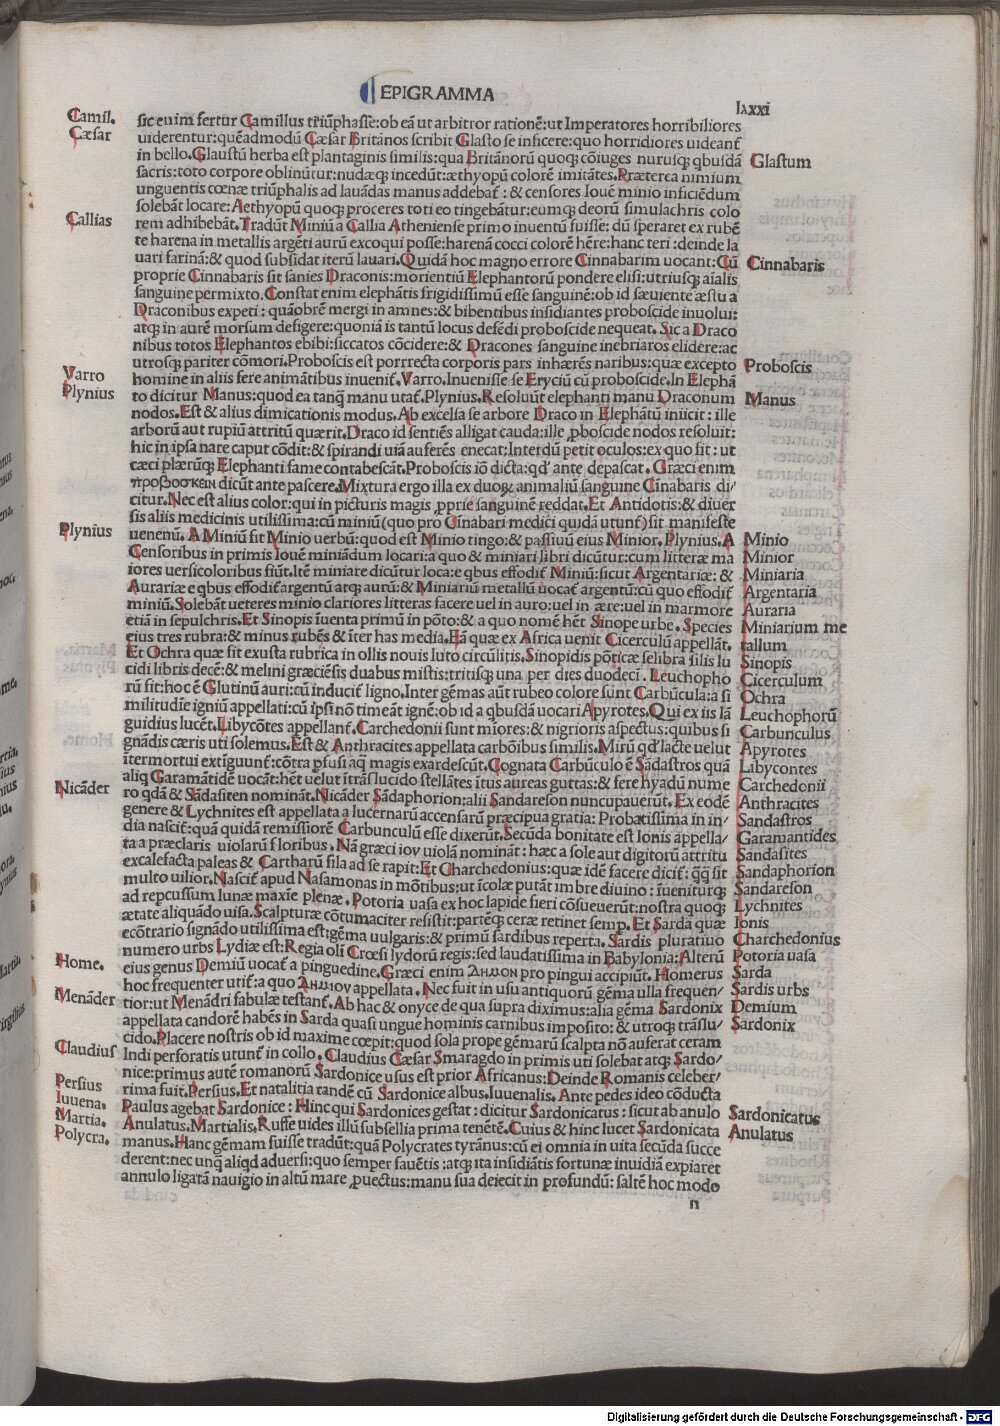 EPIGRAMMA
lxxi
Camil.
Cæsar
Callias
Varro
Plynius
Plynius
Nicãder
Home.
Menãder
Claudius
Persius
Iuuena.
Martia.
Polycra.
sic enim fertur Camillus triũphasse: ob eã ut arbitror rationẽ: ut Imperatores horribiliores
uiderentur: quẽadmodũ Cæsar Britãnos scribit Glasto se inficere: quo horridiores uideant̃
in bello. Glaustũ herba est plantaginis similis: qua Britãnorũ quoq; cõiuges nurusq; qbusdã
sacris: toto corpore oblinũtur: nudæq; incedũt: æthyopũ colorẽ imitãtes. Præterea nimium
unguentis cœnæ triũphalis ad lauãdas manus addebat̃: & censores Iouẽ minio inficiẽdum
solebãt locare: Aethyopũ quoq; proceres toti eo tingebãtur: eumq; deorũ simulachris colo
rem adhibebãt. Tradũt Miniũ a Callia Atheniense primo inuentũ fuisse: dũ speraret ex rubẽ
te harena in metallis argẽti aurũ excoqui posse: harenã cocci colorẽ hẽre: hanc teri: deinde la
uari farinã: & quod subsidat iterũ lauari. Quidã hoc magno errore Cinnabarim uocant: Cũ
proprie Cinnabaris sit sanies Draconis: morientiũ Elephantorũ pondere elisi: utriusq; aĩalis
sanguine permixto. Constat enim elephãtis frigidissimũ esse sanguinẽ: ob id sæuiente æstu a
Draconibus expeti: quãobrẽ mergi in amnes: & bibentibus insidiantes proboscide inuolui:
atq; in aurẽ morsum defigere: quoniã is tantũ locus defẽdi proboscide nequeat. Sic a Draco
nibus totos Elephantos ebibi: siccatos cõcidere: & Dracones sanguine inebriatos elidere: ac
utrosq; pariter cõmori. Proboscis est porrrecta corporis pars inhærẽs naribus: quæ excepto
homine in aliis fere animãtibus inuenit̃. Varro. Inuenisse se Eryciũ cũ proboscide. In Elephã
to dicitur Manus: quod ea tanq̃ manu utat̃. Plynius. Resoluũt elephanti manu Draconum
nodos. Est & alius dimicationis modus. Ab excelsa se arbore Draco in Elephãtũ iniicit: ille
arborũ aut rupiũ attritũ quærit. Draco id sentiẽs alligat cauda: ille ꝓboscide nodos resoluit:
hic in ipsa nare caput cõdit: & spirandi uiã auferẽs enecat: Interdũ petit oculos: ex quo fit: ut
cæci plærũq; Elephanti fame contabescãt. Proboscis iõ dicta: qd' ante depascat. Græci enim
προβοσκειν dicũt ante pascere. Mixtura ergo illa ex duoꝝ animaliũ sanguine Cinabaris di/
citur. Nec est alius color: qui in picturis magis ꝓprie sanguinẽ reddat. Et Antidotis: & diuer
sis aliis medicinis utilissima: cũ miniũ (quo pro Cinabari medici quidã utunt̃) sit manifeste
uenenũ. A Miniũ fit Minio uerbũ: quod est Minio tingo: & passiuũ eius Minior. Plynius. A
Censoribus in primis Iouẽ miniãdum locari: a quo & miniari libri dicũtur: cum litteræ ma
iores uersicoloribus fiũt. Itẽ miniate dicũtur loca: e qbus effodit̃ Miniũ: sicut Argentariæ: &
Aurariæ e qbus effodit̃ argentũ atq; aurũ: & Miniariũ metallũ uocat̃ argentũ: cũ quo effodit̃
miniũ. Solebãt ueteres minio clariores litteras facere uel in auro: uel in ære: uel in marmore
etiã in sepulchris. Et Sinopis ĩuenta primũ in põto: & a quo nomẽ hẽt Sinope urbe. Species
eius tres rubra: & minus rubẽs & ĩter has media. Eã quæ ex Africa uenit Cicerculũ appellãt.
Et Ochra quæ fit exusta rubrica in ollis nouis luto circũlitis. Sinopidis põticæ selibra silis lu
cidi libris decẽ: & melini græciẽsis duabus mistis: tritisq; una per dies duodecĩ. Leuchopho
rũ fit: hoc ẽ Glutinũ auri: cũ inducit̃ ligno. Inter gẽmas aũt rubeo colore sunt Carbũcula: a si
militudĩe igniũ appellati: cũ ĩpsi nõ timeãt ignẽ: ob id a qbusdã uocari Apyrotes. Qui ex iis lã
guidius lucẽt. Libycõtes appellant̃. Carchedonii sunt miores: & nigrioris aspectus: quibus si
gnãdis cæris uti solemus. Est & Anthracites appellata carbõibus similis. Mirũ qd' lacte uelut
ĩtermortui extĩguunt̃: cõtra ꝓfusi aq̃ magis exardescũt. Cognata Carbũculo ẽ Sãdastros quã
aliq Garamãtidẽ uocãt: hẽt uelut ĩtrãslucido stellãtes ĩtus aureas guttas: & fere hyadũ nume
ro qdã & Sãdasiten nominãt. Nicãder Sãdaphorion: alii Sandareson nuncupauerũt. Ex eodẽ
genere & Lychnites est appellata a lucernarũ accensarũ præcipua gratia: Probatissima in in/
dia nascit̃: quã quidã remissiorẽ Carbunculũ esse dixerũt. Secũda bonitate est Ionis appella/
ta a præclaris uiolarũ floribus. Nã græci ιον uiolã nominãt: hæc a sole aut digitorũ attritu
excalefacta paleas & Cartharũ fila ad se rapit: Et Charchedonius: quæ idẽ facere dicit̃: q̃q̃ sit
multo uilior. Nascit̃ apud Nasamonas in mõtibus: ut ĩcolæ putãt imbre diuino: ĩueniturq;
ad repcussum lunæ maxĩe plenæ. Potoria uasa ex hoc lapide fieri cõsueuerũt: nostra quoq;
ætate aliquãdo uisa. Scalpturæ cõtumaciter resistit: partẽq; ceræ retinet semp. Et Sarda quæ
ecõtrario signãdo utilissima est: gẽma uulgaris: & primũ sardibus reperta. Sardis pluratiuo
numero urbs Lydiæ est: Regia olĩ Crœsi lydorũ regis: sed laudatissima in Babylonia: Alterũ
eius genus Demiũ uocat̃ a pinguedine. Græci enim Δημον pro pingui accipiũt. Homerus
hoc frequenter utit̃: a quo Δημιον appellata. Nec fuit in usu antiquorũ gẽma ulla frequen/
tior: ut Menãdri fabulæ testant̃. Ab hac & onyce de qua supra diximus: alia gẽma Sardonix
appellata candorẽ habẽs in Sarda quasi ungue hominis carnibus imposito: & utroq; trãslu/
cido. Placere nostris ob id maxime cœpit: quod sola prope gẽmarũ scalpta nõ auferat ceram
Indi perforatis utunt̃ in collo. Claudius Cæsar Smaragdo in primis uti solebat atq; Sardo/
nice: primus autẽ romanorũ Sardonice usus est prior Africanus: Deinde Romanis celeber/
rima fuit. Persius. Et natalitia randẽ cũ Sardonice albus. Iuuenalis. Ante pedes ideo cõducta
Paulus agebat Sardonice: Hinc qui Sardonices gestat: dicitur Sardonicatus: sicut ab anulo
Anulatus. Martialis. Ruffe uides illũ subsellia prima tenẽtẽ. Cuius & hinc lucet Sardonicata
manus. Hanc gẽmam fuisse tradũt: quã Polycrates tyrãnus: cũ ei omnia in uita secũda succe
derent: nec unq̃ aliqd aduersi: quo semper fauẽtis: atq; ita insidiãtis fortunæ inuidiã expiaret
annulo ligatã nauigio in altũ mare ꝓuectus: manu sua deiecit in profundũ: saltẽ hoc modo
n
Glastum
Cinnabaris
Proboscis
Manus
Minio
Minior
Miniaria
Argentaria
Auraria
Miniarium me
tallum
Sinopis
Cicerculum
Ochra
Leuchophorũ
Carbunculus
Apyrotes
Libycontes
Carchedonii
Anthracites
Sandastros
Garamantides
Sandasites
Sandaphorion
Sandareson
Lychnites
Ionis
Charchedonius
Potoria uasa
Sarda
Sardis urbs
Demium
Sardonix
Sardonicatus
Anulatus
Digitalisierung gefördert durch die Deutsche Forschungsgemeinschaft - DFG